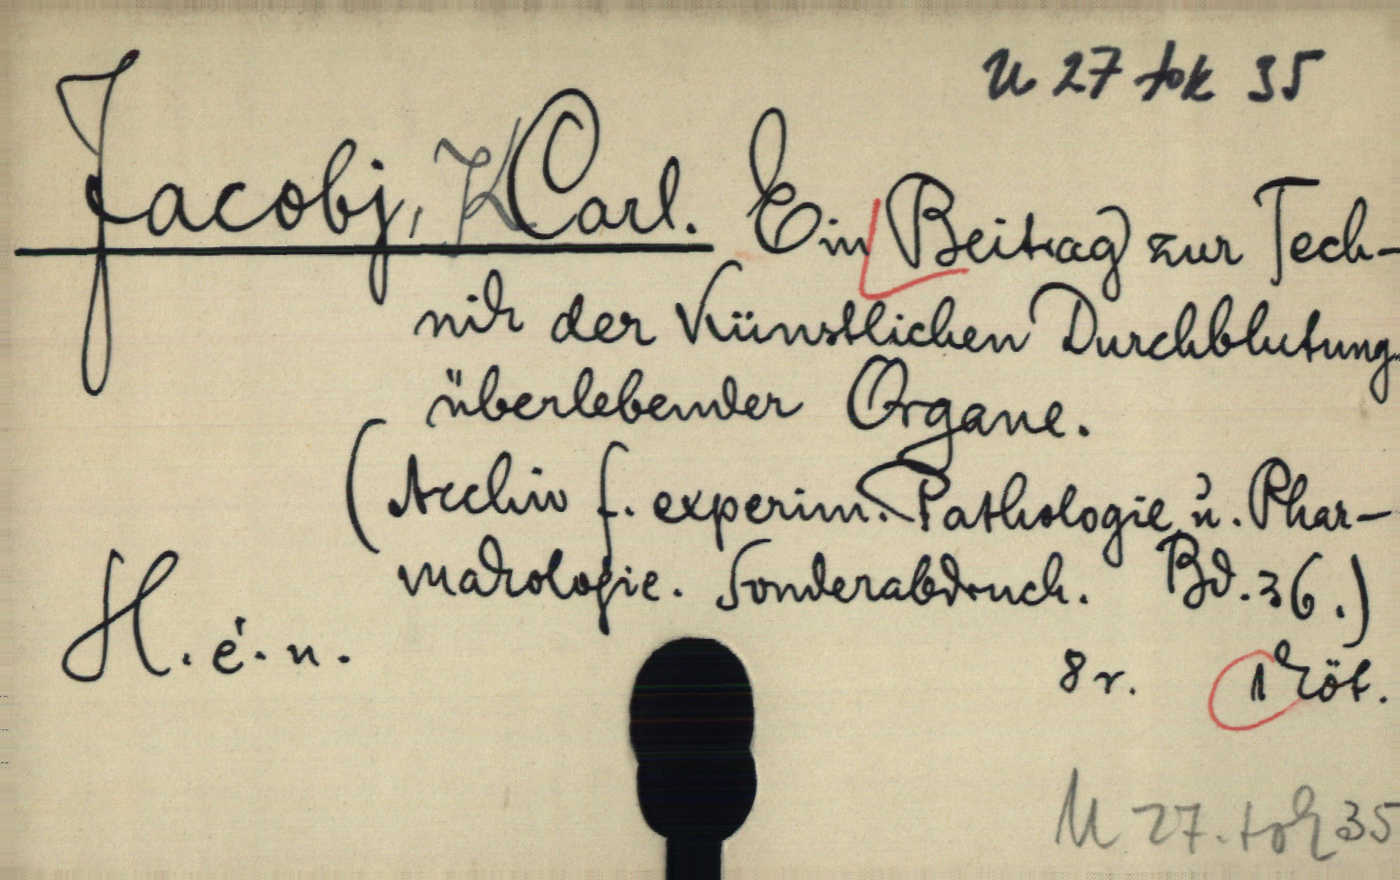 U 27 tok 35
Jacobj, K Carl. Ein Beitrag zur Tech-
nik der Künstlichen Durchblutung
überlebender Organe.
(Archiv f. experim. Pathologie u. Phar-
makologie. Sonderabdruck. Bd. 36.)
H. é. n.
8r. 1 köt.
U 27. tok 35